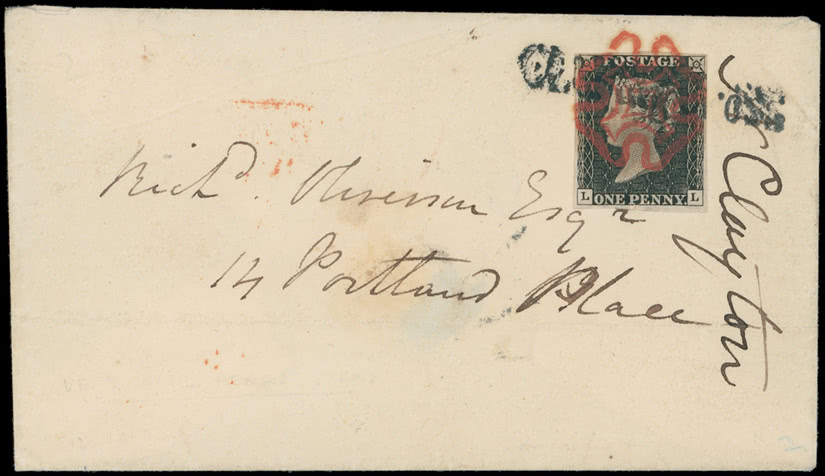 POSTAGE
L L
ONE PENNY
Rich^d. Esq^r
14 Portland Place
Clayton